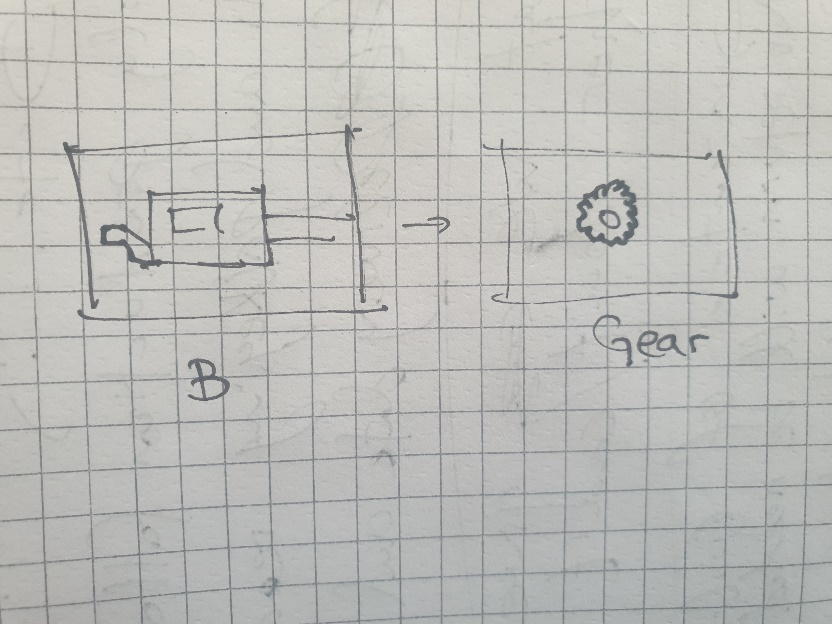 B
Gear